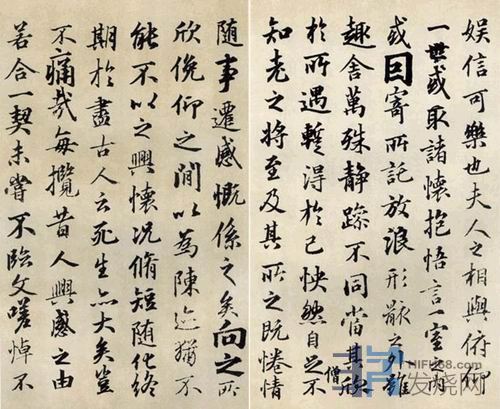 娛信可樂也夫人之相與俯仰
一世或取諸懷抱悟言一室之內
或因寄所託放浪形骸之外雖
趣舍萬殊靜躁不同當其欣
於所遇蹔得於己怏然自足不
知老之將至及其所之既惓情
僧
隨事遷感慨係之矣向之所
欣俛仰之間以為陳迹猶不
能不以之興懷況脩短隨化終
期於盡古人云死生亦大矣豈
不痛哉每攬昔人興感之由
若合一契未嘗不臨文嗟悼不
发烧网